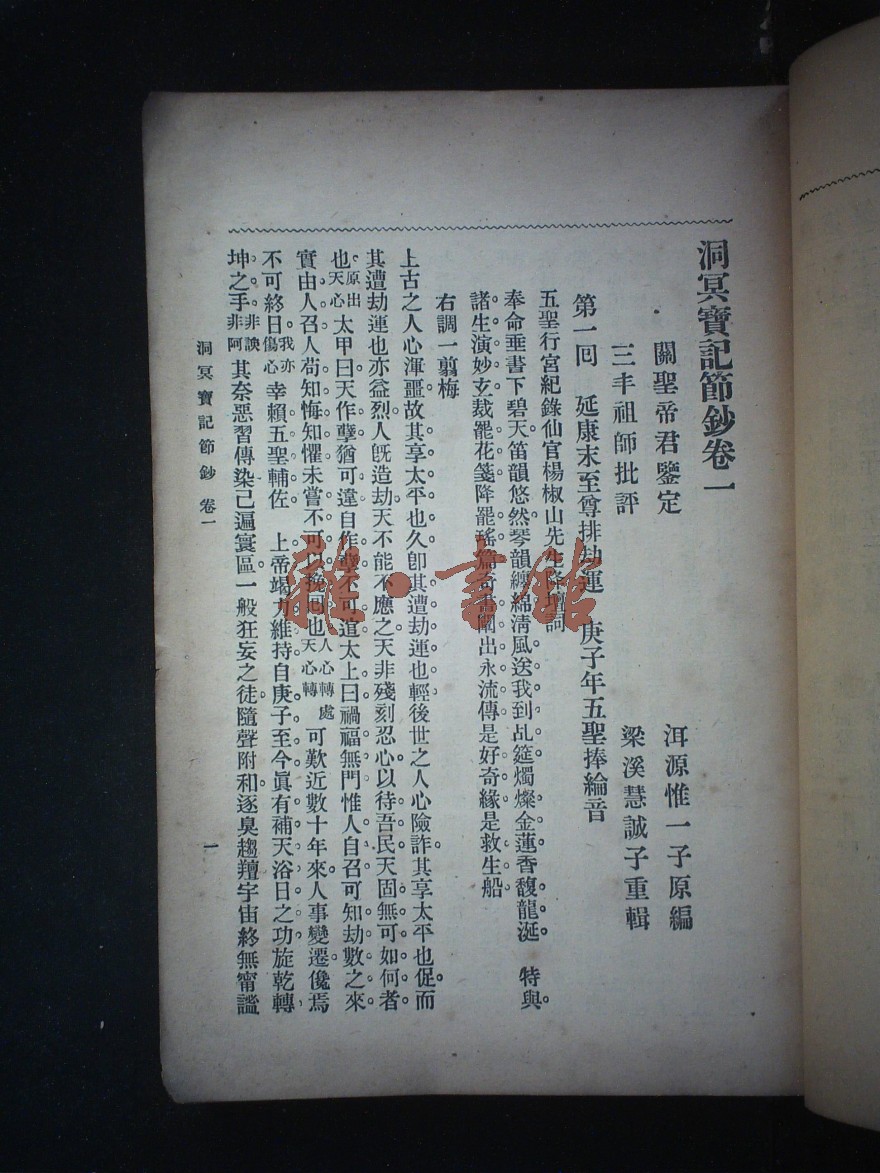 洞冥寶記節鈔卷一
關聖帝君鑒定　洱源惟一子原編
三丰祖師批評　梁溪慧誠子重輯
第一回　延康末至尊排劫運　庚子年五聖捧綸音
五聖行宮紀錄仙官楊椒山先生降壇詞
奉命垂書下碧天。笛韻悠然。琴韻纏綿。清風送我到乩筵。燭燦金蓮。香馥龍涎。　特與
諸生演妙玄。裁罷花箋。降罷瑤篇。奇書闡出永流傳。是好奇緣。是救生船
右調一剪梅
上古之人心渾噩。故其享太平也久。卽其遭劫運也輕。後世之人心險詐。其享太平也促。而
其遭劫運也亦益烈。人旣造劫。天不能不應之。天非殘刻忍心以待吾民。天固無可如何者
也。原出天心太甲曰。天作孽猶可違。自作孽不可逭。太上曰。禍福無門。惟人自召。可知劫數之來
實由人召。人苟知悔知懼。未嘗不可以挽回也。人心轉處天心轉可歎近數十年來。人事變遷。儳焉
不可終日。我亦傷心幸賴五聖輔佐　上帝。竭力維持。自庚子至今。眞有補天浴日之功。旋乾轉
坤之手。非諛非阿其奈惡習傳染。已遍寰區。一般狂妄之徒。隨聲附和。逐臭趨羶。宇宙終無甯謐
洞冥寶記節鈔　卷一　一
雜·書館